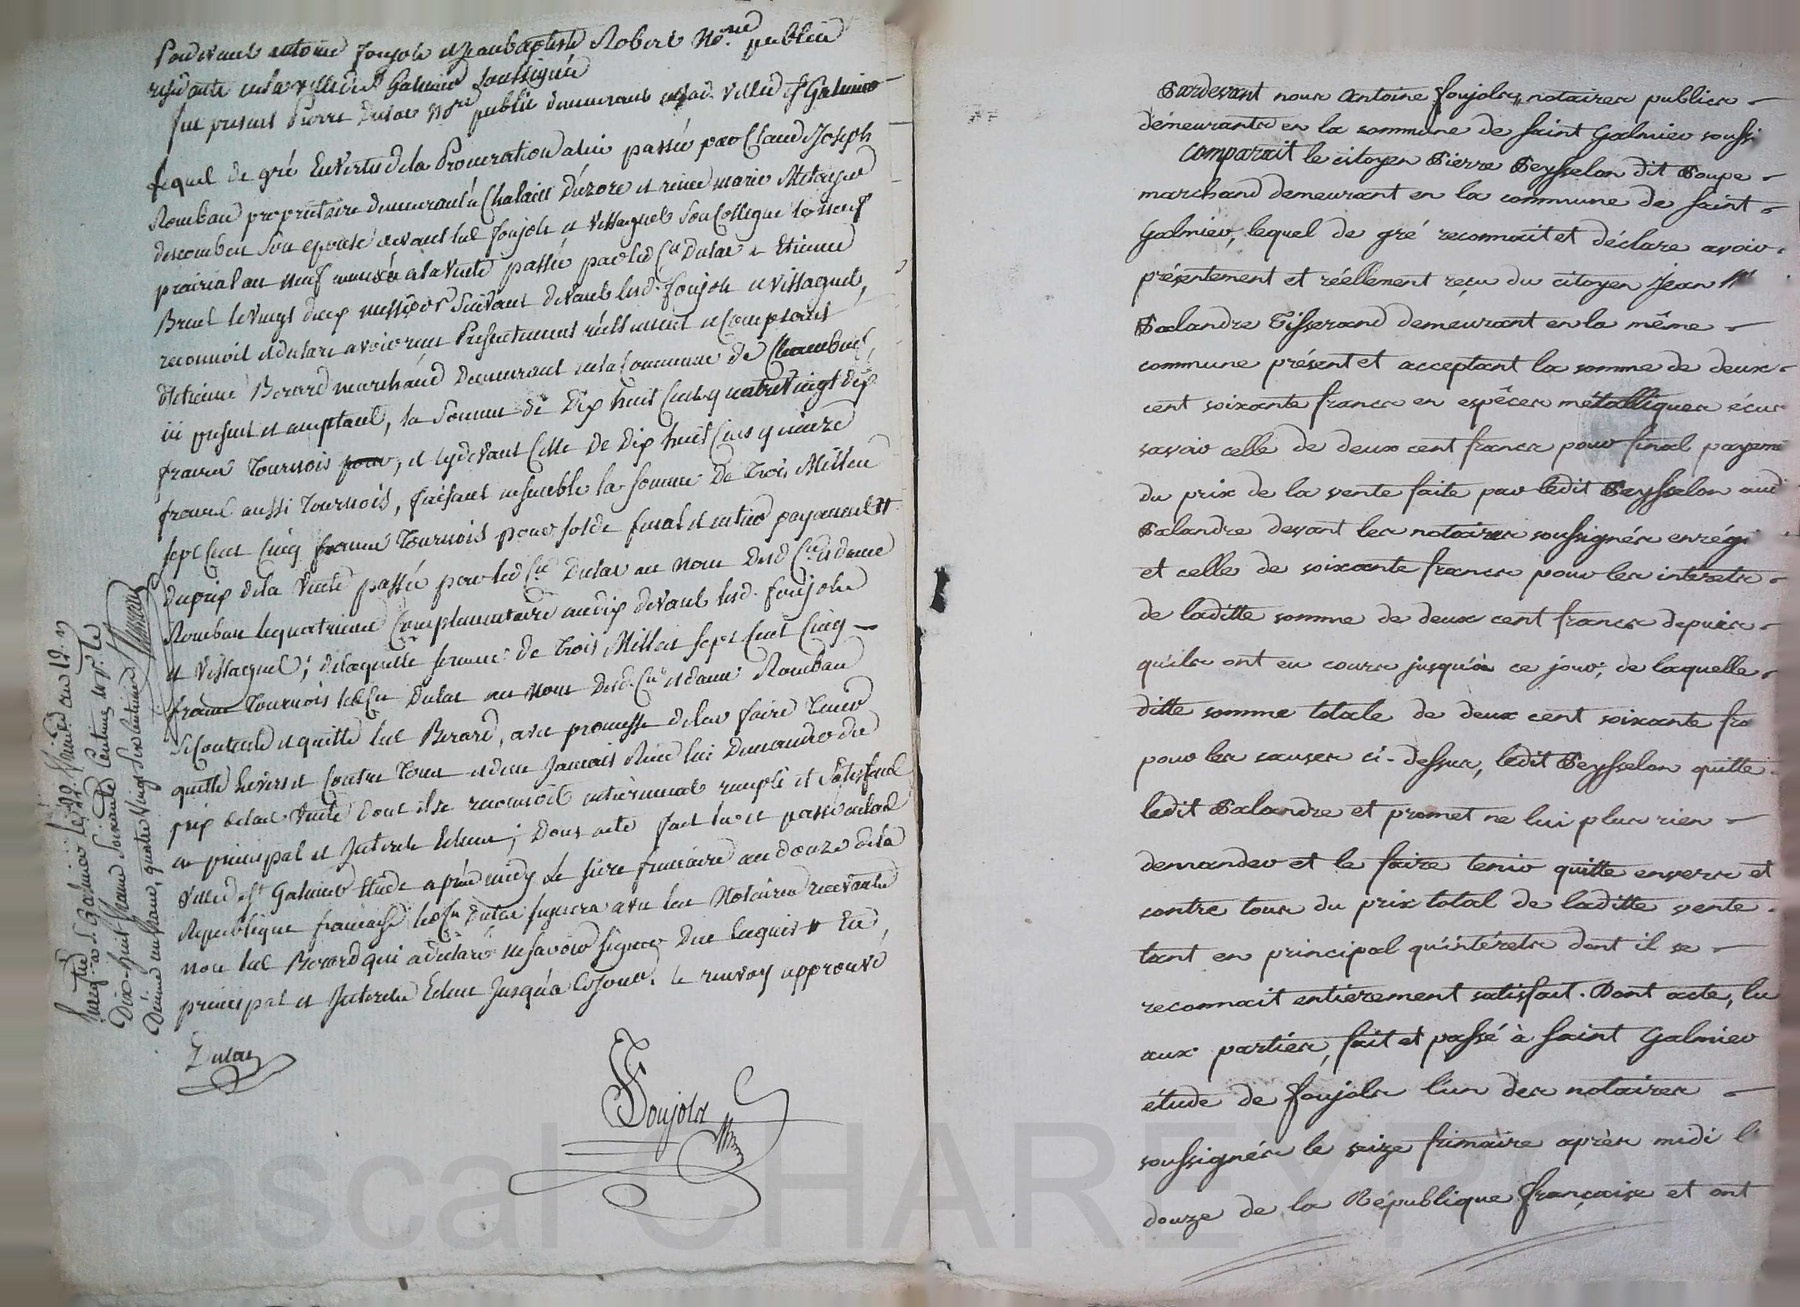 Pardevant antoine foujols et Jean baptiste Robert Nores publics
residants en la ville de St Galmier soussignés
fut present Pierre Dulac Nore public demeurant en lad. ville de St Galmier
lequel de gré En vertu de la Procuration a lui passée par Claude Joseph
Rombau propriétaire demeurant a Chalain d'uzore et reine marie
descombes son epouse devant lui foujols et Vissaguet son Collegue le neuf
prairial an neuf a la vente passée par led. Cn Dulac a Etienne
Brunl le vingt deux messidor suivant devant lesd. foujols et Vissaguet,
reconnoit et declare avoir reçu Presentement réellement et Comptant
d'etienne Berard marchand demeurant en la Commune de Chambœuf,
ici present et acceptant, la somme de Dix huit Cent quatre vingt dix
francs Tournois, et cy devant Celle de Dix huit Cent quinze
francs aussi Tournois, faisant ensemble la somme De Trois Mille
sept Cent Cinq francs Tournois pour solde final et entier payement #
du prix de la Vente passée par led. Cn Dulac au nom Desd. Cn et dame
Rombau le quatrieme Complementaire an dix devant lesd. foujols
et Vissaguet; de laquelle somme de Trois Mille sept Cent Cinq
francs Tournois led. Cn Dulac au nom Desd. Cn et dame Rombau
se Contente et quitte led. Berard, avec promesse de le faire Tenir
quitte Envers et Contre Tous et de ne Jamais Rien lui Demander du
prix de lad. Vente dont il se reconnoit entierement rempli et satisfait
en principal et Interets Echus; Dont acte fait lu et passé en lad.
ville de St Galmier Etude après midy Le seize frimaire an douze de la
Republique française led. Cn Dulac signera avec les Notaires recevants
non led. Berard qui a déclaré ne savoir signer De ce Enquis # En
principal et Interets Echus Jusqu'a Ce Jour. le renvoy approuvé
Dulac
Foujols
Enregistré a St Galmier le 22 frimaire an 12
Dix-huit francs soixante Centimes
Decime un franc, quatre vingt six Centimes
Pardevant nous Antoine foujols, notaires publics
démeurants en la commune de Saint Galmier soussi
comparait le citoyen Pierre Peysselon dit Poupe
marchand demeurant en la commune de Saint
Galmier, lequel de gré reconnait et déclare avoir
présentement et réellement reçu du citoyen Jean M
Palandre Tisserand demeurant en la même
commune présent et acceptant la somme de deux
cent soixante francs en espêces métalliques écus
savoir celle de deux cent francs pour final payem
du prix de la vente faite par ledit Peysselon aud
Palandre devant les notaires soussignés enrégi
et celle de soixante francs pour les intérets
de laditte somme de deux cent francs depuis
qu'ils ont eu cours jusqu'à ce jour, de laquelle
ditte somme totale de deux cent soixante fra
pour les causes ci-dessus, ledit Peysselon quitte
ledit Palandre et promet ne lui plus rien
demander et le faire tenir quitte envers et
contre tous du prix total de laditte vente
tant en principal qu'intérets dont il se
reconnait entièrement satisfait. Dont acte, lu
aux parties, fait et passé à Saint Galmier
étude de foujols l'un des notaires
soussignés le seize frimaire après midi l'
douze de la République française et ont
Pascal CHAREYRON